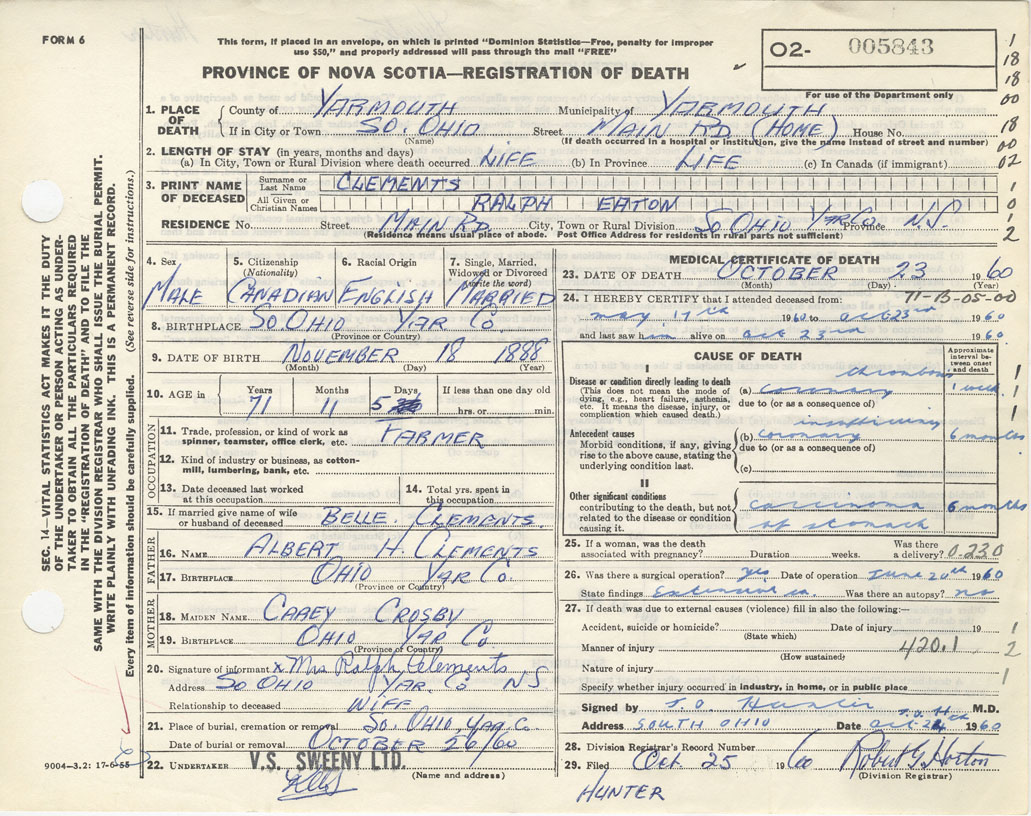 FORM 6
This form, if placed in an envelope, on which is printed "Dominion Statistics—Free, penalty for improper
use $50," and properly addressed will pass through the mail "FREE"
O2- 005843
PROVINCE OF NOVA SCOTIA—REGISTRATION OF DEATH
For use of the Department only
1. PLACE OF DEATH County of YARMOUTH Municipality of YARMOUTH
If in City or Town SO. OHIO Street MAIN RD (HOME) House No.
(Name) (If death occurred in a hospital or institution, give the name instead of street and number)
2. LENGTH OF STAY (in years, months and days)
(a) In City, Town or Rural Division where death occurred LIFE (b) In Province LIFE (c) In Canada (if immigrant)
3. PRINT NAME OF DECEASED Surname or Last Name CLEMENTS
All Given or Christian Names RALPH EATON
RESIDENCE No. Street MAIN RD. City, Town or Rural Division SO OHIO YAR CO. Province N.S.
(Residence means usual place of abode. Post Office Address for residents in rural parts not sufficient)
4. Sex MALE
5. Citizenship (Nationality) CANADIAN
6. Racial Origin ENGLISH
7. Single, Married, Widowed or Divorced (write the word) MARRIED
8. BIRTHPLACE SO. OHIO YAR CO.
(Province or Country)
9. DATE OF BIRTH NOVEMBER 18 1888
(Month) (Day) (Year)
10. AGE in Years 71 Months 11 Days 5 If less than one day old hrs. or min.
OCCUPATION
11. Trade, profession, or kind of work as
spinner, teamster, office clerk, etc. FARMER
12. Kind of industry or business, as cotton-
mill, lumbering, bank, etc.
13. Date deceased last worked
at this occupation
14. Total yrs. spent in
this occupation
15. If married give name of wife
or husband of deceased BELLE CLEMENTS
FATHER
16. NAME ALBERT H. CLEMENTS
17. BIRTHPLACE OHIO YAR CO.
(Province or Country)
MOTHER
18. MAIDEN NAME CAREY CROSBY
19. BIRTHPLACE OHIO YAR CO
(Province or Country)
20. Signature of informant x Mrs Ralph Clements
Address SO OHIO YAR CO NS
Relationship to deceased WIFE
21. Place of burial, cremation or removal SO. OHIO YAR CO.
Date of burial or removal OCTOBER 26/60
22. UNDERTAKER V.S. SWEENY LTD.
(Name and address)
9004—3.2: 17-6-55
MEDICAL CERTIFICATE OF DEATH
23. DATE OF DEATH OCTOBER 23 1960
(Month) (Day) (Year)
71-B-05-00
24. I HEREBY CERTIFY that I attended deceased from:
may 17th 1960 to oct 23rd 1960
and last saw him alive on oct 23rd 1960
CAUSE OF DEATH
Approximate interval between onset and death
I
Disease or condition directly leading to death
(This does not mean the mode of
dying, e.g., heart failure, asthenia,
etc. It means the disease, injury, or
complication which caused death.)
(a) coronary thrombosis 1 week
due to (or as a consequence of)
Antecedent causes
Morbid conditions, if any, giving
rise to the above cause, stating the
underlying condition last.
(b) coronary insufficiency 6 months
due to (or as a consequence of)
(c)
II
Other significant conditions
contributing to the death, but not
related to the disease or condition
causing it.
carcinoma of stomach 6 months
25. If a woman, was the death
associated with pregnancy? Duration weeks. Was there a delivery? 0.220
26. Was there a surgical operation? yes Date of operation June 20th 1960
State findings Extensive ca. Was there an autopsy? no
27. If death was due to external causes (violence) fill in also the following:—
Accident, suicide or homicide? Date of injury 19
(State which)
Manner of injury 420.1
(How sustained)
Nature of injury
Specify whether injury occurred in industry, in home, or in public place
Signed by T. O. Hunter M.D.
Address SOUTH OHIO Date oct 24 1960
28. Division Registrar's Record Number
29. Filed Oct 25 1960 Robert G Horton
(Division Registrar)
HUNTER
SEC. 14—VITAL STATISTICS ACT MAKES IT THE DUTY
OF THE UNDERTAKER OR PERSON ACTING AS UNDER-
TAKER TO OBTAIN ALL THE PARTICULARS REQUIRED
IN THE "REGISTRATION OF DEATH" AND TO FILE THE
SAME WITH THE DIVISION REGISTRAR WHO SHALL ISSUE THE BURIAL PERMIT.
WRITE PLAINLY WITH UNFADING INK. THIS IS A PERMANENT RECORD.
Every item of information should be carefully supplied. (See reverse side for instructions.)
1
18
18
00
18
00
02
1
0
2
1
1
1
1
2
1